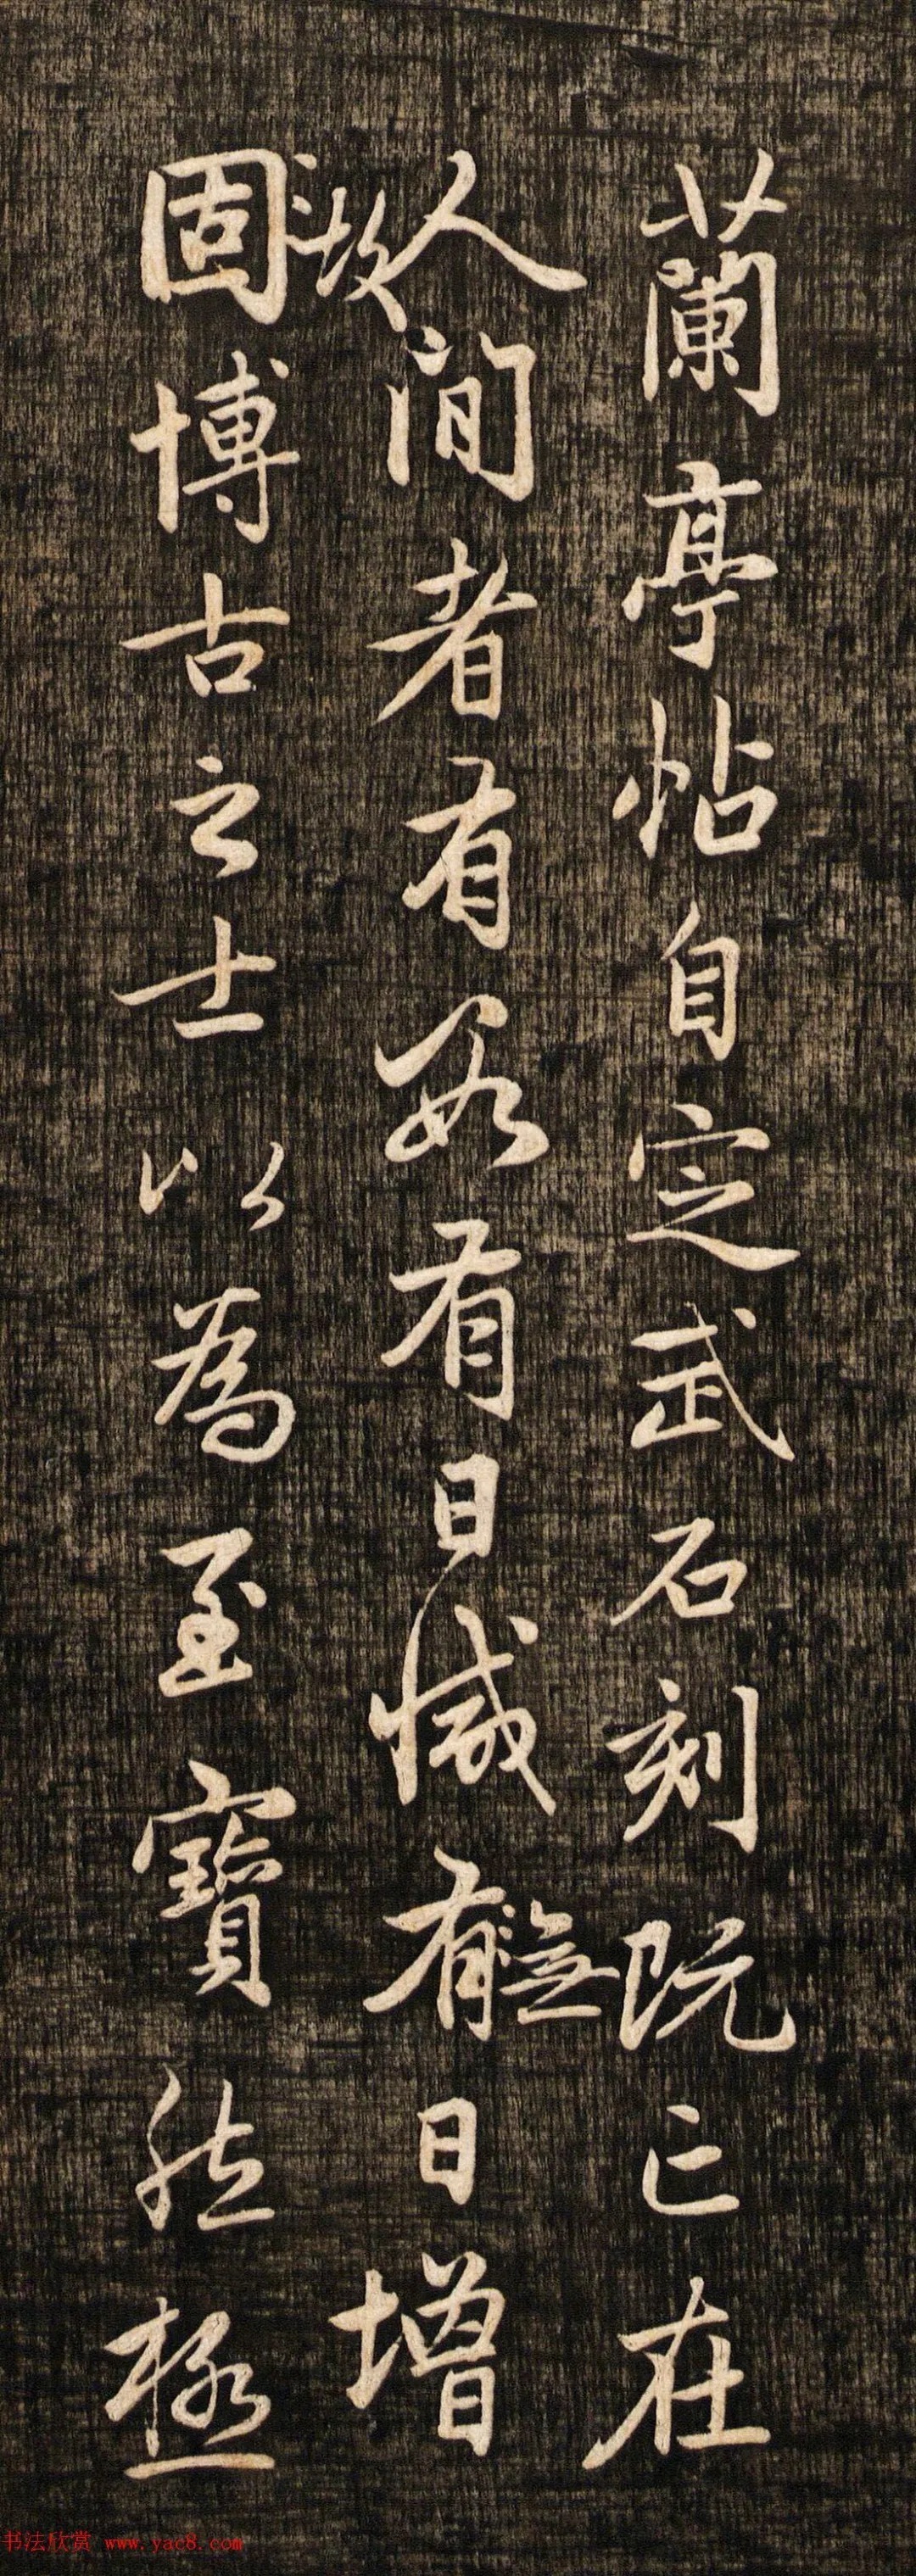 蘭亭帖自定武石刻既亡在
人間者有数有日减有無日增
故固博古之士以為至寶然極
书法欣赏 www.yac8.com